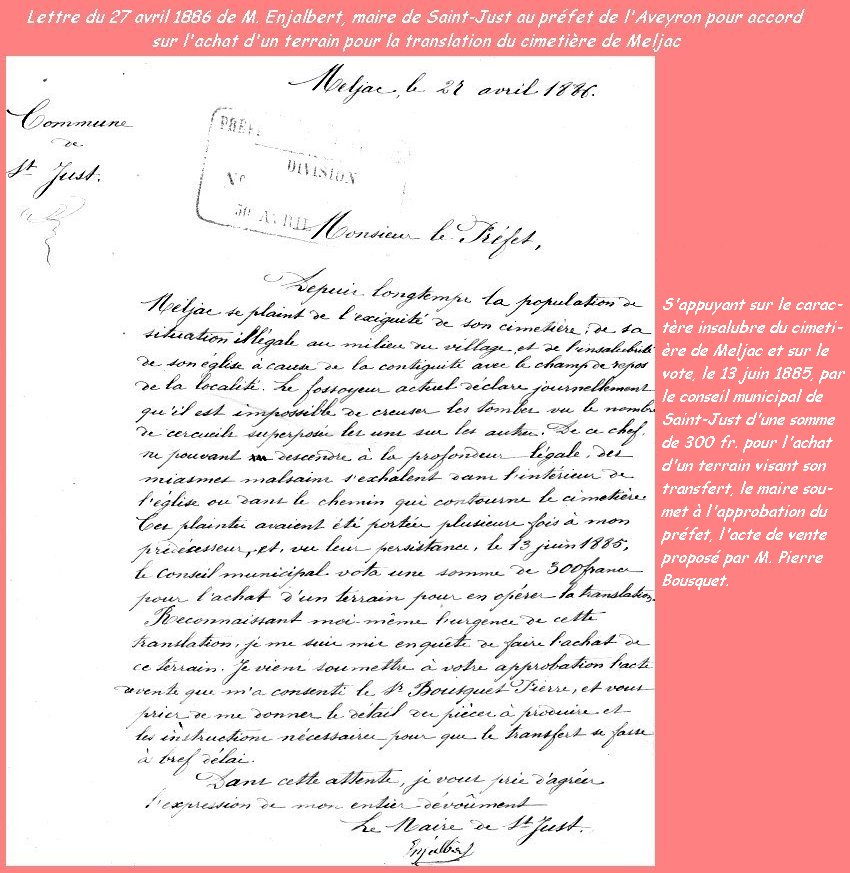 Lettre du 27 avril 1886 de M. Enjalbert, maire de Saint-Just au préfet de l'Aveyron pour accord
sur l'achat d'un terrain pour la translation du cimetière de Meljac
Meljac, le 27 avril 1886.
Commune
de
St Just.
PREF
DIVISION
No
30 AVRIL
Monsieur le Préfet,
Depuis longtemps la population de
Meljac se plaint de l'exiguité de son cimetière, de sa
situation illégale au milieu du village, et de l'insalubrité
de son église à cause de la contiguité avec le champ de repos
de la localité. Le fossoyeur actuel déclare journellement
qu'il est impossible de creuser les tombes vu le nombre
de cercueils superposés les uns sur les autres. De ce chef,
ne pouvant descendre à la profondeur légale, des
miasmes malsains s'exhalent dans l'intérieur de
l'église ou dans le chemin qui contourne le cimetière
Ces plaintes avaient été portées plusieurs fois à mon
prédécesseur, et, vu leur persistance, le 13 juin 1885,
le Conseil municipal vota une somme de 300 francs
pour l'achat d'un terrain pour en opérer la translation.
Reconnaissant moi même l'urgence de cette
translation, je me suis mis en quête de faire l'achat de
ce terrain. Je viens soumettre à votre approbation l'acte
de vente que m'a consenti le Sr Bousquet Pierre, et vous
prier de me donner le détail des pièces à produire et
les instructions nécessaires pour que le transfert se fasse
à bref délai.
Dans cette attente, je vous prie d'agréer
l'expression de mon entier dévoûment
Le Maire de St Just.
Enjalbert
S'appuyant sur le carac-
tère insalubre du cimeti-
ère de Meljac et sur le
vote, le 13 juin 1885, par
le conseil municipal de
Saint-Just d'une somme
de 300 fr. pour l'achat
d'un terrain visant son
transfert, le maire sou-
met à l'approbation du
préfet, l'acte de vente
proposé par M. Pierre
Bousquet.